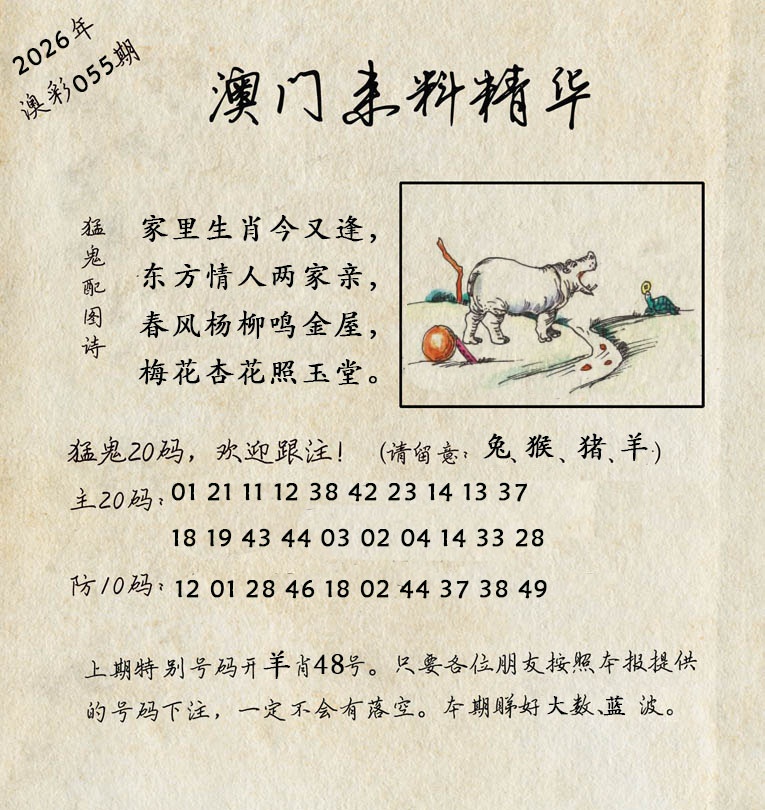 2026年
澳彩055期
澳门来料精华
猛鬼配图诗
家里生肖今又逢，
东方情人两家亲，
春风杨柳鸣金屋，
梅花杏花照玉堂。
猛鬼20码，欢迎跟注！（请留意：兔、猴、猪、羊）
主20码：01 21 11 12 38 42 23 14 13 37
18 19 43 44 03 02 04 14 33 28
防10码：12 01 28 46 18 02 44 37 38 49
上期特别号码开羊肖48号。只要各位朋友按照本报提供
的号码下注，一定不会有落空。本期睇好大数、蓝 波。